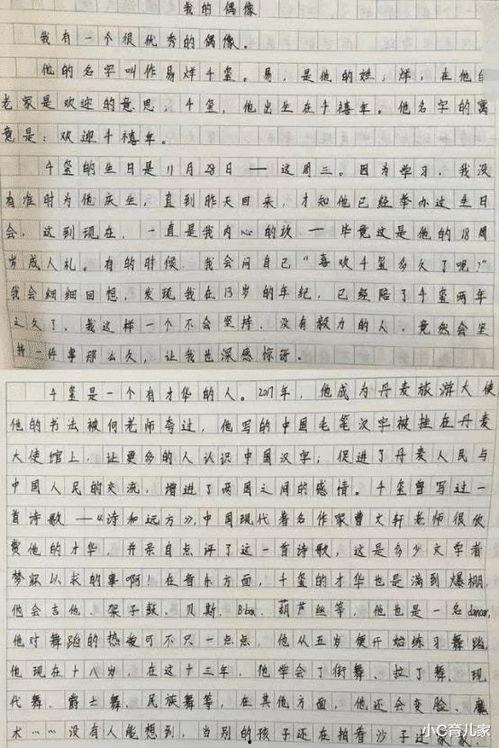 我的偶像
我有一个很优秀的偶像。
他的名字叫作易烊千玺。易，是他的姓；烊，在他
老家是欢迎的意思；千玺，他出生在千禧年。他名字的寓
意是：欢迎千禧年。
千玺的生日是11月28日——这周三。因为学习，我没
有准时为他庆生，直到昨天回来，才知他已经举办过生日
会。这到现在，一直是我内心的坎——毕竟这是他的18周
岁成人礼。有的时候，我会问自己“喜欢千玺多久了呢？”
我会细细回想，发现我在13岁的年纪，已经陪了千玺两年
之久了，我这样一个不会坚持，没有毅力的人，竟然会坚
持一件事那么久，让我也深感惊讶。
千玺是一个有才华的人。2017年，他成为丹麦旅游大使
他的书法被何老师夸过，他写的中国毛笔汉字被挂在丹麦
大使馆上，让更多的人认识中国汉字；促进了丹麦人民与
中国人民的交流，增进了两国之间的感情。千玺曾写过一
首诗歌——《诗和远方》，中国现代著名作家曹文轩老师很欣
赏他的才华，并亲自点评了这一首诗歌，这是多少文学者
梦寐以求的事啊！在音乐方面，千玺的才华也是满到爆棚，
他会吉他、架子鼓、贝斯、B-box、葫芦丝等，他也是一名dancer，
他对舞蹈的热爱可不只一点点，他从五岁便开始练习舞蹈，
他现在十八岁，在这十三年，他学会了街舞、拉丁舞、现
代舞、爵士舞、民族舞等，在其他方面，他还会变脸、魔
术……没有人能想到，当别的孩子还在拍着沙子过家家
小C育儿家